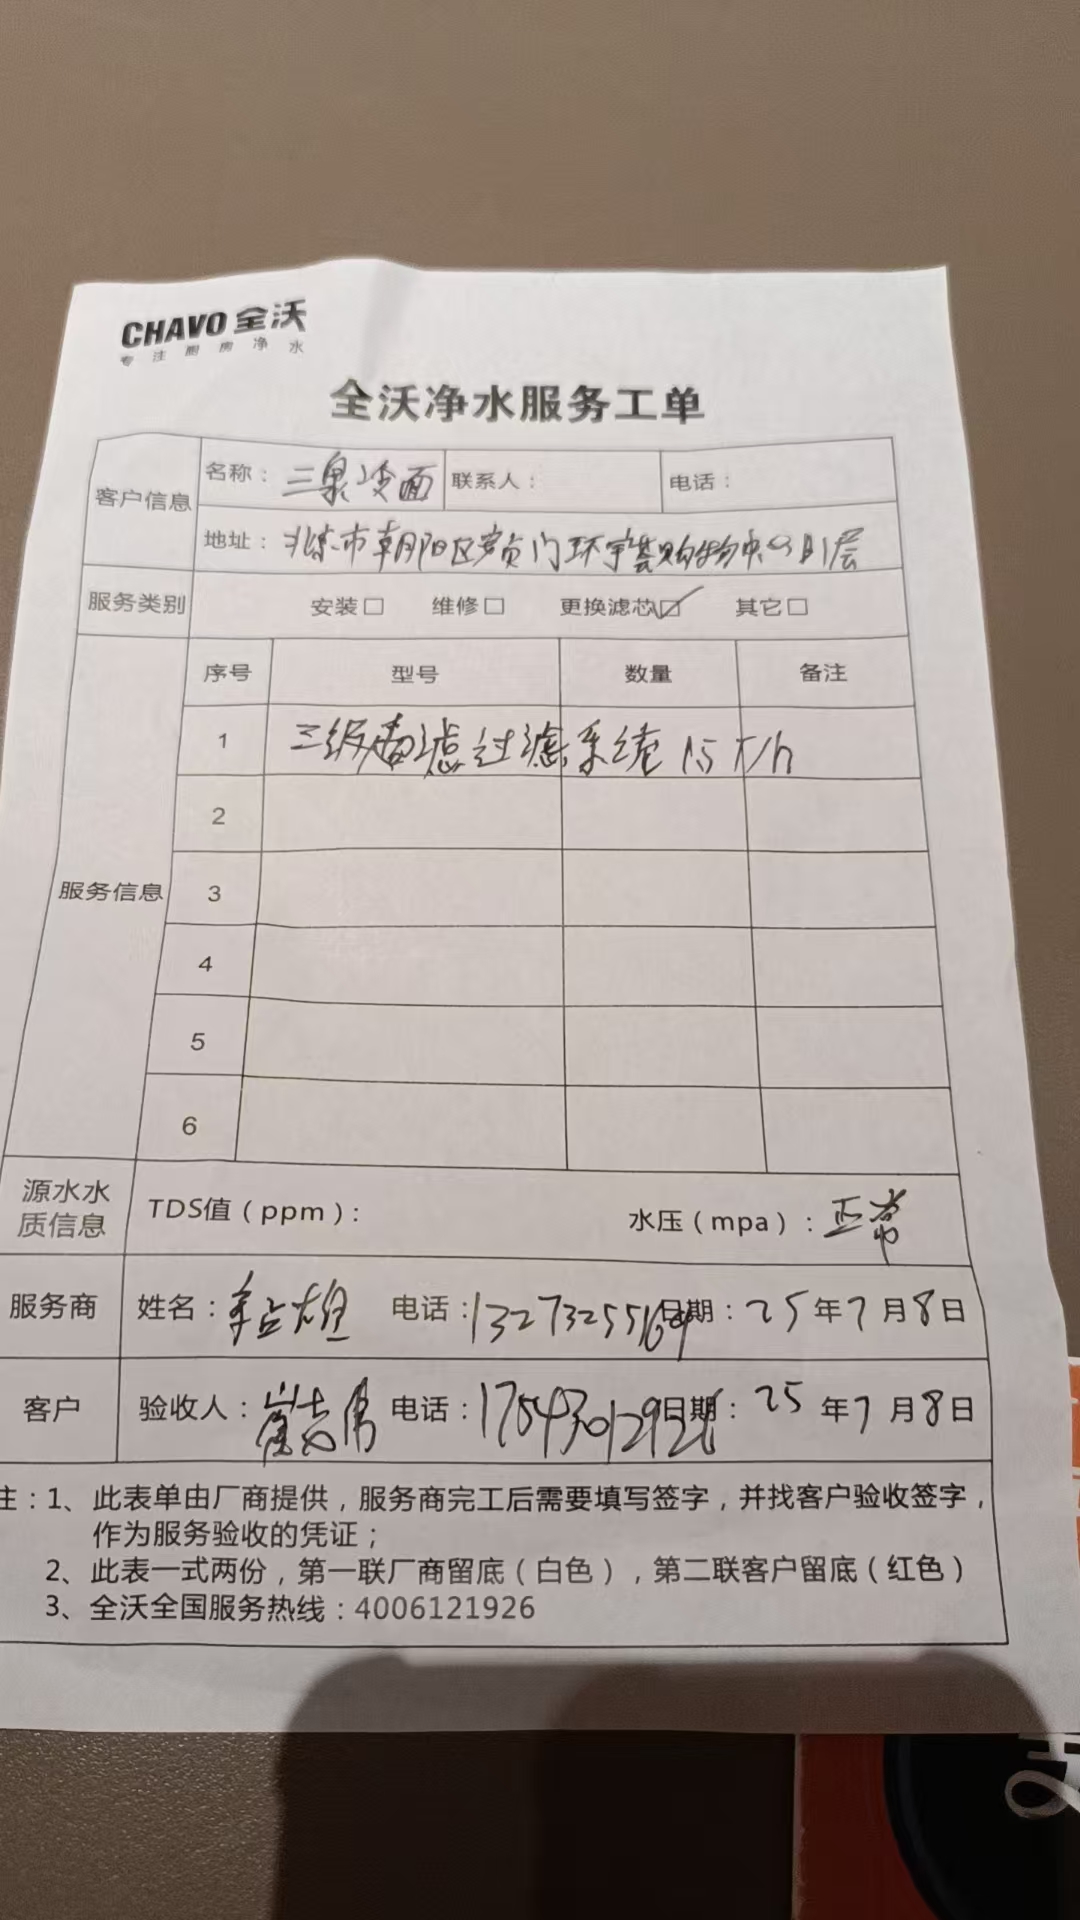 CHAVO 全沃
专注厨房净水
全沃净水服务工单
客户信息 名称：三泉冷面 联系人： 电话：
地址：北京市朝阳区 门环宇荟购物中心B1层
服务类别 安装□ 维修□ 更换滤芯☑ 其它□
服务信息 序号 型号 数量 备注
1 三级超滤过滤系统 1.5T/h
2
3
4
5
6
源水水质信息 TDS值（ppm）： 水压（mpa）：正常
服务商 姓名： 电话： 日期：25年7月8日
客户 验收人：崔志勇 电话： 日期：25年7月8日
注：1、此表单由厂商提供，服务商完工后需要填写签字，并找客户验收签字，
作为服务验收的凭证；
2、此表一式两份，第一联厂商留底（白色），第二联客户留底（红色）
3、全沃全国服务热线：4006121926